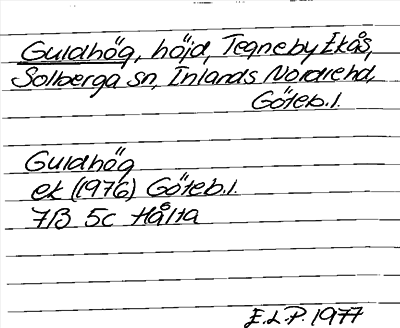 Guldhög, höjd, Tegneby Ekås,
Solberga sn, Inlands Nordre hd,
Göteb. l.
Guldhög
ek (1976) Göteb. l.
7B 5c Hålta
E.L.P. 1977